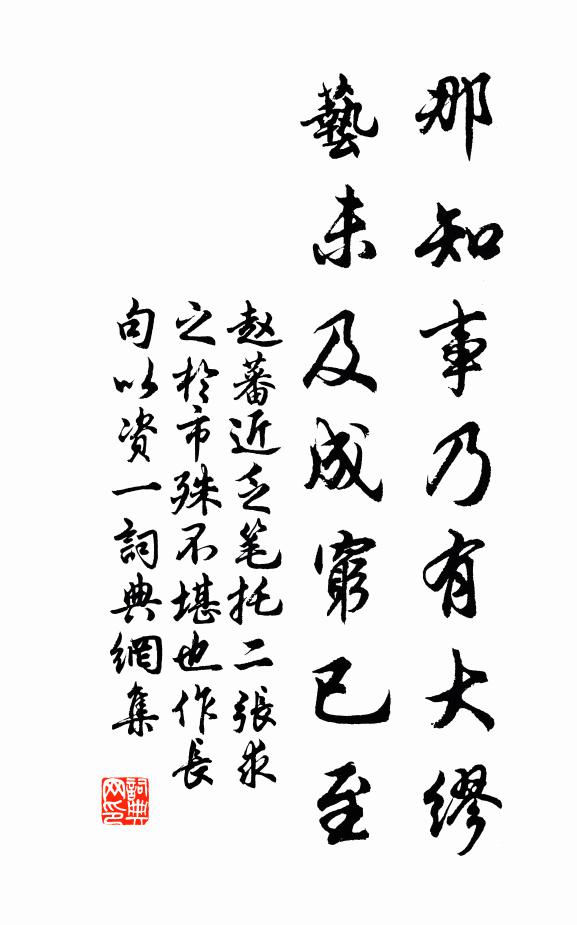 那知事乃有大繆
藝未及成窮已至
赵蕃近乏笔托二張求
之於市殊不堪也作長
句以资一詞典網集
詞典
网印